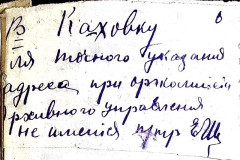 В Каховку
для точного указания
адреса, при организации
архивного управления
не имеется